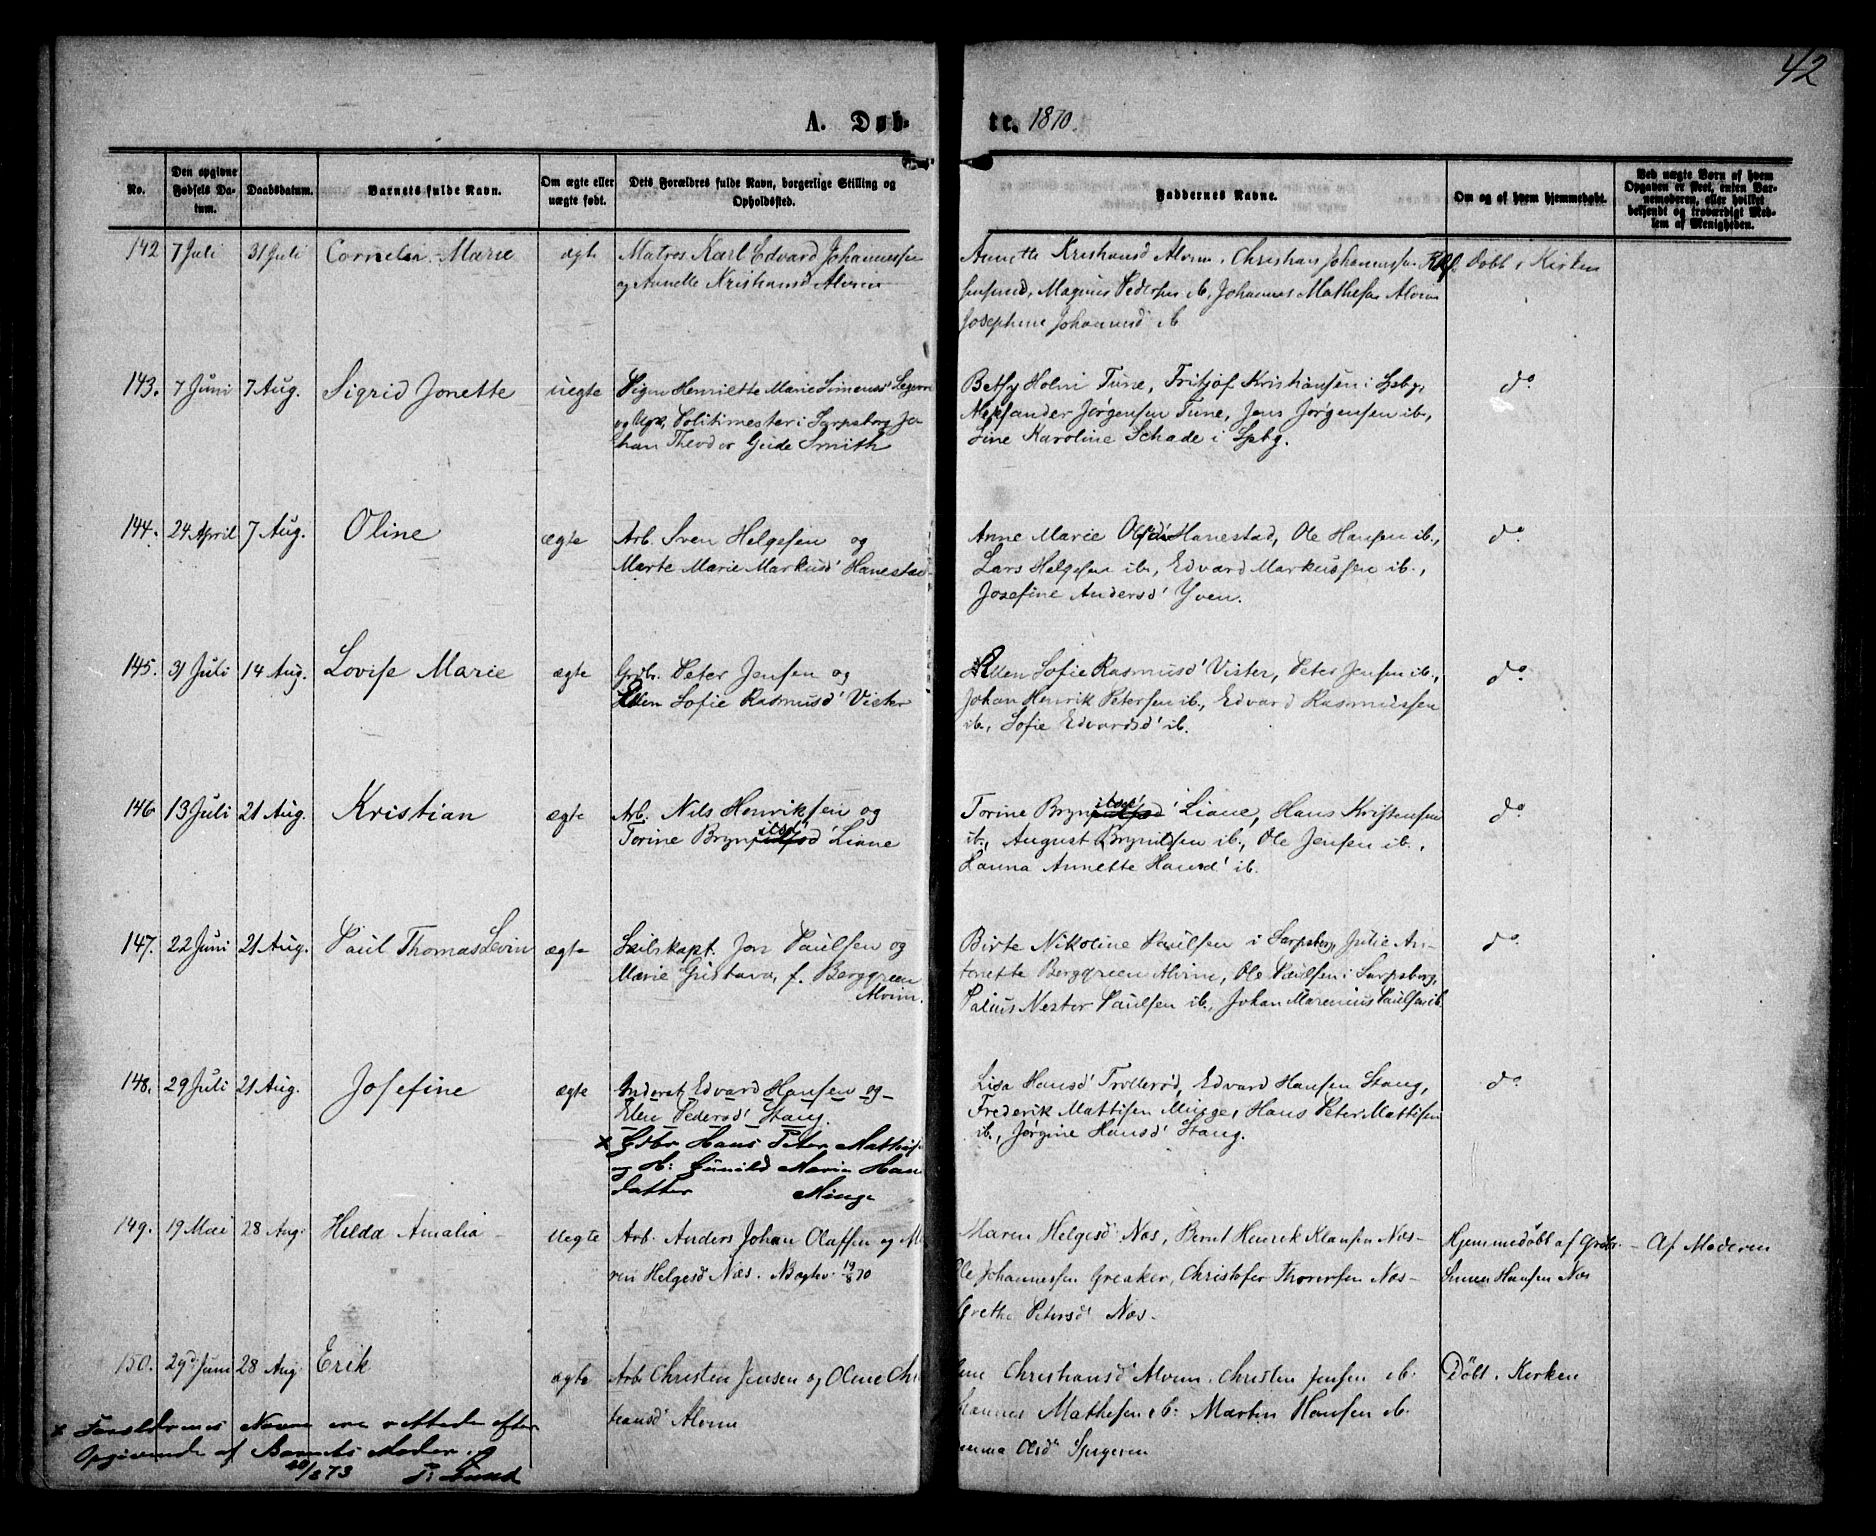 42
A. Døb-
te. 1870.
No.
Den opgivne Fødsels Datum.
Daabsdatum.
Barnets fulde Navn.
Om ægte eller uægte født.
Dets Forældres fulde Navn, borgerlige Stilling og Opholdssted.
Faddernes Navne.
Om og af hvem hjemmedøbt.
Ved uægte Børn af hvem Opgaven er skeet, enten Barnemoderen, eller hvilket bekjendt og troværdigt Medlem af Menigheden.
142 7 Juli 31 Juli Cornelia Marie ægte Matros Karl Edvard Johannessen
og Annette Kristiansd Alvim
Annette Kristiansd Alvim, Christian Johannessen
Magnus Pedersen ib, Johannes Mathesen Alvim
Josephine Johannesd ib
Døbt i Kirken
143. 7 Juni 7 Aug. Sigrid Jonette uegte Pigen Henriette Marie Simensd'
og Ugk. Politimester i Sarpsborg Jo-
han Theodor Gude Smith
Betsy Holm Tune, Fritjof Kristiansen i Spbg,
Alexander Jørgensen Tune, Jens Jørgensen ib.,
Line Karoline Schade i Spbg.
do
144. 24 April 7 Aug. Oline ægte Arb. Sven Helgesen og
Marte Marie Markusd' Hanestad
Anne Marie Olsd' Hanestad, Ole Hansen ib.,
Lars Helgesen ib., Edvard Markussen ib.,
Josefine Andersd' Yven.
do
145. 31 Juli 14 Aug. Lovise Marie ægte Grdbr. Peter Jensen og
Ellen Sofie Rasmusd' Vister
Ellen Sofie Rasmusd' Vister, Peter Jensen ib.,
Johan Henrik Petersen ib., Edvard Rasmussen
ib., Sofie Edvardsd' ib.
do
146 13 Juli 21 Aug. Kristian ægte Arb. Nils Henriksen og
Torine Brynildsd' Liane
Torine Brynildsd' Liane, Hans Kristensen
ib., August Brynildsen ib., Ole Jensen ib.,
Hanna Annette Hansd' ib.
do
147. 22 Juni 21 Aug. Paul Thomas Levin ægte Skibskapt. Jon Paulsen og
Marie Gustava, f. Berggreen
Alvim.
Birte Nikoline Paulsen i Sarpsborg, Julie An-
tonette Berggreen Alvim, Ole Paulsen i Sarpsborg,
Palius Nester Paulsen ib., Johan Marenius Paulsen ib.
do
148. 29 Juli 21 Aug. Josefine ægte Inderst Edvard Hansen og
Elen Pedersd' Stang.
x Gdbr Hans Peter Mathis
og H: Gunild Maria Han
datter Minge
Lisa Hansd' Trollerød, Edvard Hansen Stang,
Frederik Mattisen Minge, Hans Peter Mattisen
ib., Jørgine Hansd' Stang.
do
149. 19 Mai 28 Aug. Hilda Amalia uegte Arb. Anders Johan Olaffen og Ma
ren Helgesd Næs. 19/8 70
Maren Helgesd Næs, Bernt Henrik Klausen Næs-
Ole Johannessen Greaker, Christofer Thoresen Næs-
Grethe Petersd' Næs-
Hjemmedøbt af Grdbr.
Simen Hansen Næs
- Af Moderen
150. 29de Juni 28 Aug Erik ægte Arb Christen Jensen og Oline Chri
stiansd' Alvim
line Christiansd' Alvim, Christen Jensen ib.
hannes Mathesen ib. Martin Hansen ib
mma Olsd
Døbt i Kirken
x Forældrenes Navne ere rettede efter
Opgivende af Barnets Moder.
20/2 73 Lund